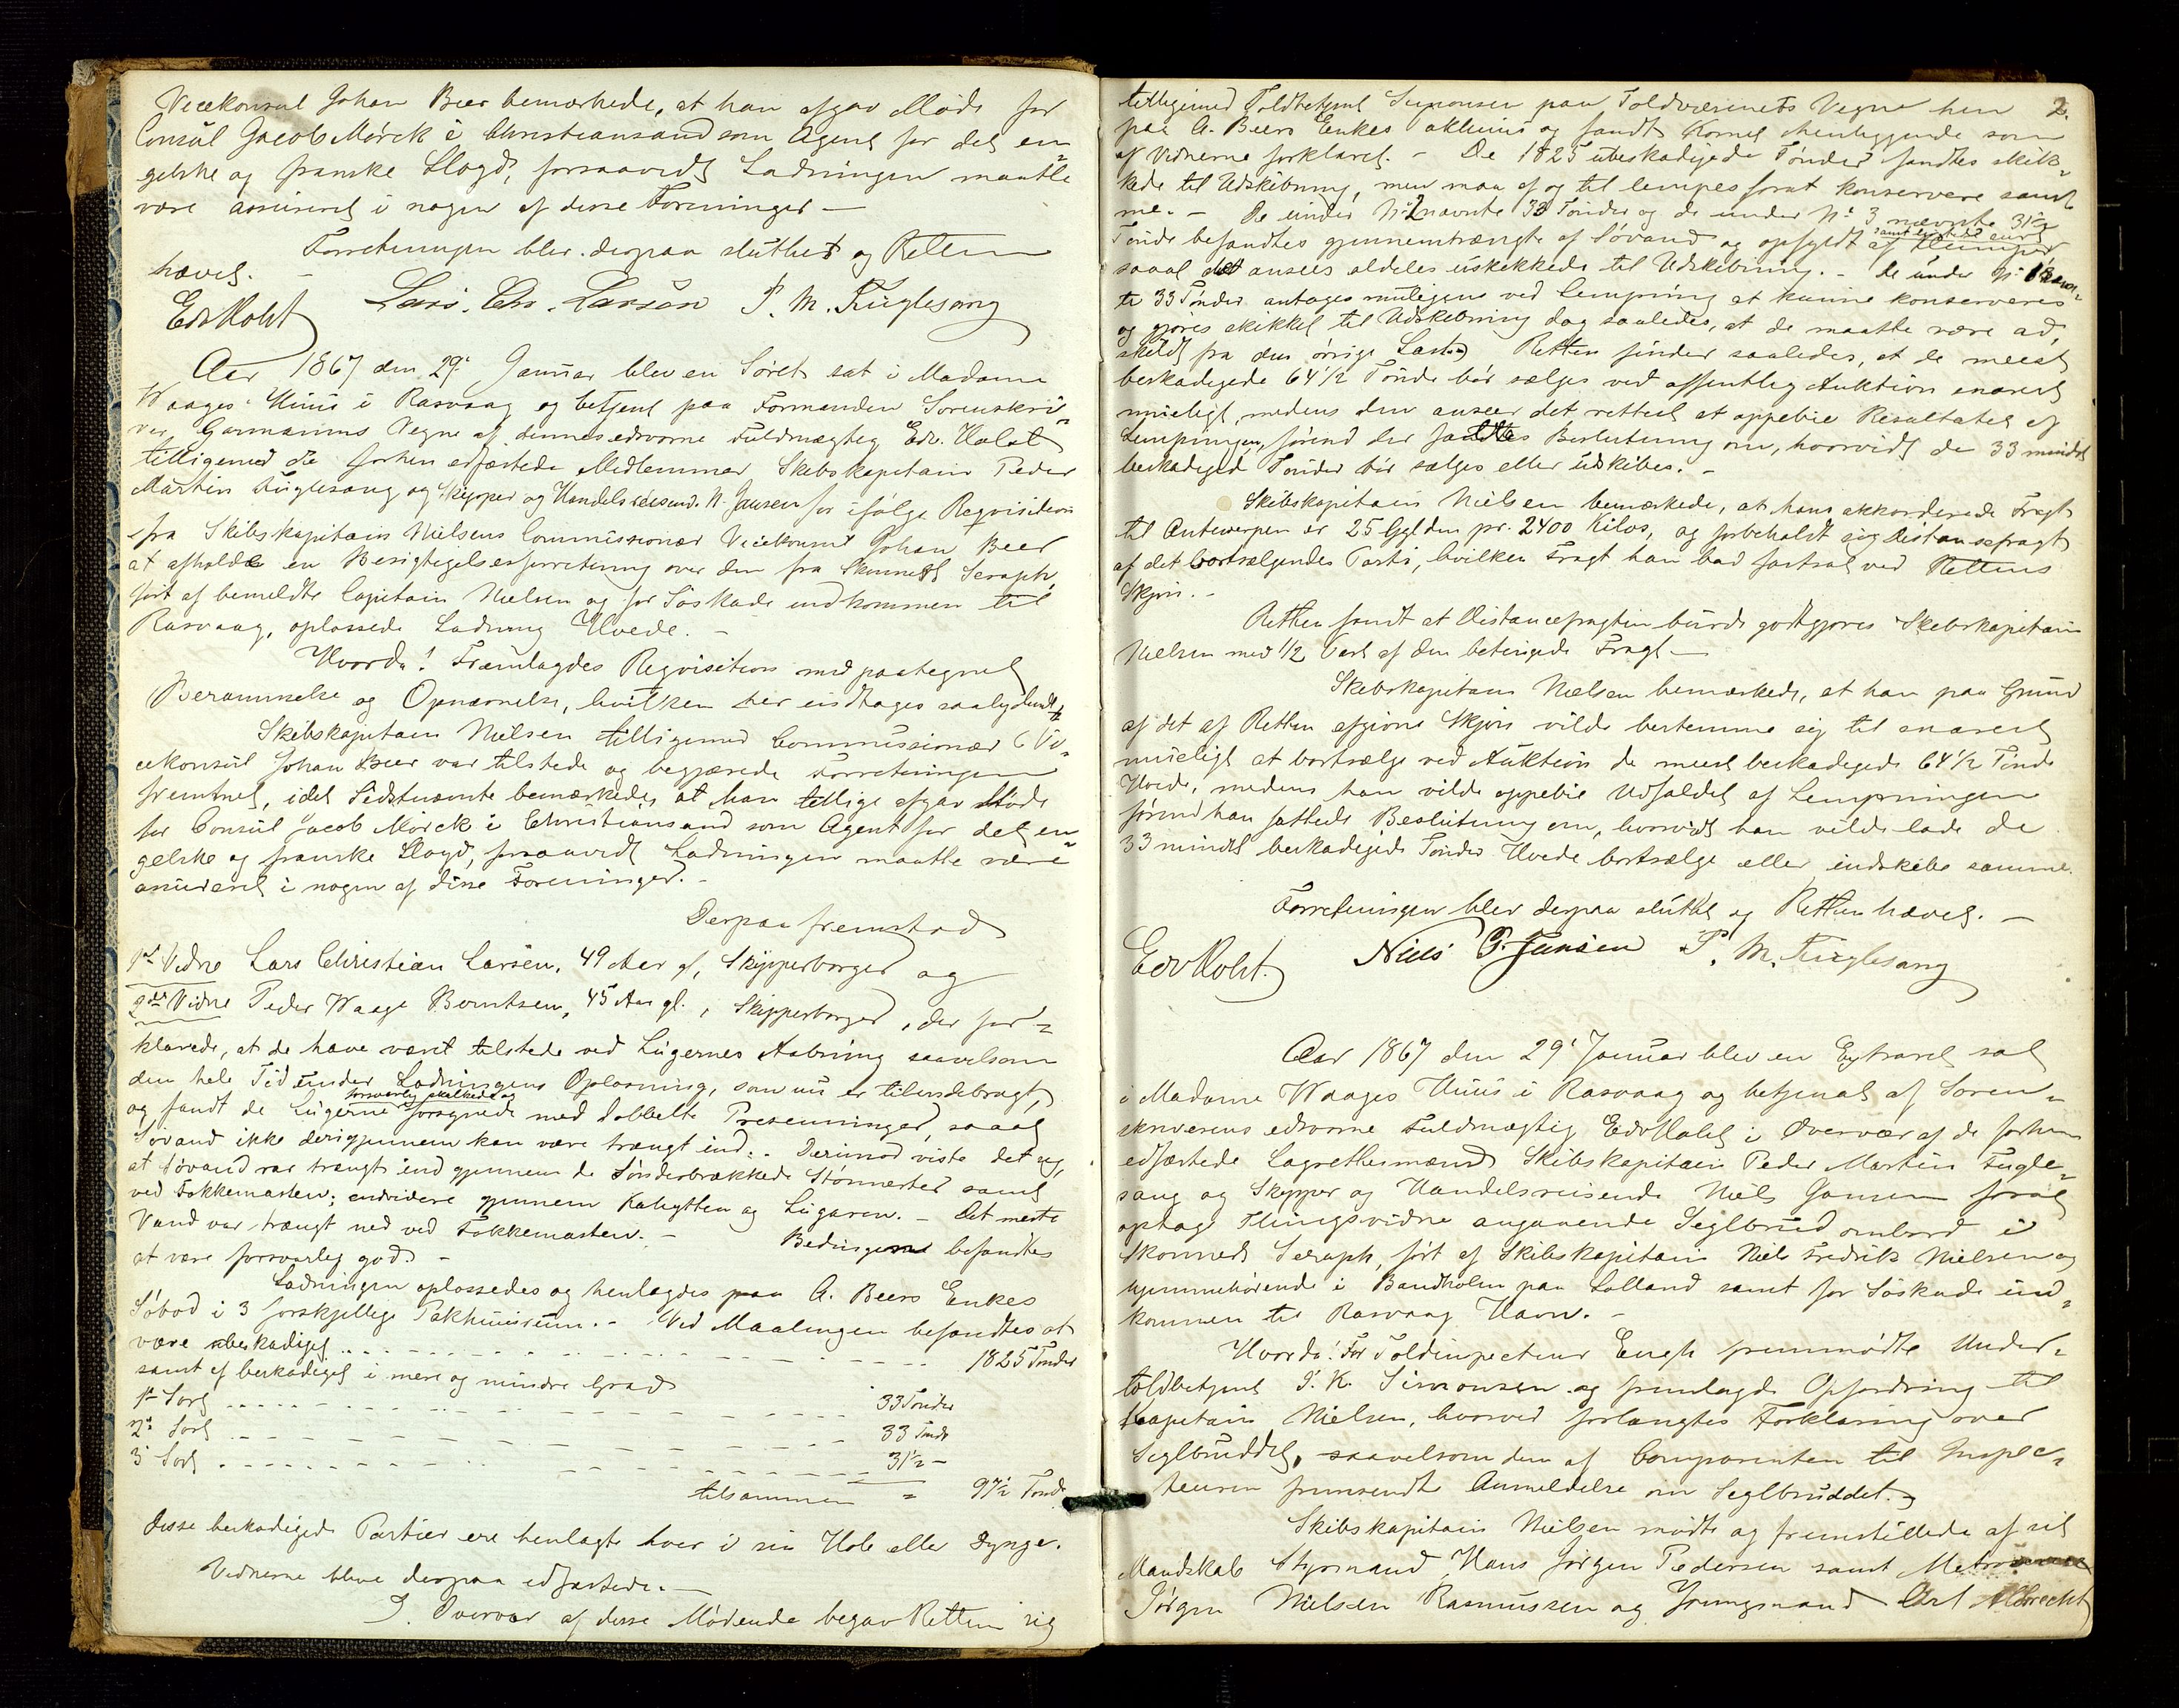 Vicekonsul Johan Beer bemærkede, at han afgav Møde for
Consul Jacob Mörck i Christiansand som Agent for det en¬
gelske og franske Lloyd, forsaavidt Ladningen maatte
være assureret i nogen af disse Foreninger —
Forretningen blev derpaa sluttet og Retten
hævet. —
Edv Holst Lars. Chr. Larsen P. M. Fuglesang
Aar 1867 den 29de Januar blev en Søret sat i Madame
Waages Huus i Rasvaag og betjent paa Formanden Sorenskri¬
ver Garmanns Vegne af dennes edsvorne Fuldmægtig Edv. Holst
tilligemed de forhen edfæstede Medlemmer Skibskapitain Peder
Martin Fuglesang og Skipper og Handelsreisend. N. Jansen for ifølge Reqvisition
fra Skibskapitain Nielsens Commissionær Vicekonsul Johan Beer
at afholde en Besigtigelsesforretning over den fra Skonnert Seraph,
ført af bemeldte Capitain Nielsen og for Søskade indkommen til
Rasvaag, oplossede Ladning Hvede. —
Hvorda! Fremlagdes Reqvisition med paategnet
Berammelse og Opnævnelse, hvilken her indtages saalydende
Skibskapitain Nielsen tilligemed Commissionær Vi¬
cekonsul Johan Beer var tilstede og begjærede Forretningen
fremmet, idet Sidstnævnte bemærkede, at han tillige afgav Møde
for Consul Jacob Mörck i Christiansand som Agent for det en¬
gelske og franske Lloyd, forsaavidt Ladningen maatte være
assureret i nogen af disse Foreninger. —
Derpaa fremstod
1ste Vidne Lars Christian Larsen, 49 Aar gl, Skipperborger og
2det Vidne Peder Waage Berntsen, 45 Aar gl., Skipperborger, der for¬
klarede, at de have været tilstede ved Lugernes Aabning saavelsom
den hele Tid under Ladningens Oplosning, som nu er tilendebragt,
og fandt de Lugerne forsvarlig skalkede og forsynede med dobbelte Presenninger, saaat
Søvand ikke derigjennem kan være trængt ind. Derimod viste det sig,
at Søvand var trængt ind gjennem de Sønderbrækkede Stønnerter samt
ved Fokkemasten; endvidere gjennem Kahytten og Lugaren. — Det meste
Vand var trængt ned ved Fokkemasten. — befandtes
at være forsvarlig god. —
Ladningen oplossedes og henlagdes paa A. Beers Enkes
Søbod i 3 forskjellige Pakhuusrum. — Ved Maalingen befandtes at
være ubeskadiget . . . . 1825 Tønder
samt af beskadiget i mere og mindre Grad
1ste Sort . . . . 33 Tønder
2de Sort . . . . 33 Tønde
3de Sort . . . . 31½ —
tilsammen = 97½ Tønde
Disse beskadigede Partier ere henlagte hver i sin Hob eller Dynge.
Vidnerne bleve derpaa edfæstede. —
I Overvær af disse Mødende begav Retten sig
2.
tilligemed Toldbetjent Simonsen paa Toldvæsenets Vegne hen
paa A. Beers Enkes Pakhuus og fandt Kornet henliggende som
af Vidnerne forklaret. — De 1825 ubeskadigede Tønder fandtes skik¬
kede til Udskibning, men maa af og til lempes forat konservere sam¬
me. — De under No 2 nævnte 33 Tønder og de under No 3 nævnte 31½
Tønde befandtes gjennemtrængte af Søvand og opfyldt af
saaat det ansees aldeles uskikkede til Udskibning. — De under No 1 nævn¬
te 33 Tønder antages muligens ved Lempning at kunne konserveres
og gjøres skikket til Udskibning dog saaledes, at de maatte være ad¬
skildt fra den øvrige Last. Retten finder saaledes, at de meest
beskadigede 64½ Tønde bør sælges ved offentlig Auktion snarest
mueligt, medens den anseer det rettest at oppebie Resultatet af
Lempningen, førend der fattes Beslutning om, hvorvidt de 33 mindst
beskadiged Tønder bør sælges eller udskibes. —
Skibskapitain Nielsen bemærkede, at hans akkorderede Fragt
til Antwerpen er 25 Gylden pr. 2400 Kilos, og forbeholdt sig Distansefragt
af det bortsælgendes Parti, hvilken Fragt han bad fastsat ved Rettens
Skjøn. —
Retten fandt at Distancefragten burde godtgjøres Skibskapitain
Nielsen med 1/2 Part af den betingede Fragt —
Skibskapitain Nielsen bemærkede, at han paa Grund
af det af Retten afgivne Skjøn vilde bestemme sig til snarest
mueligt at bortsælge ved Auktion de meest beskadigede 64½ Tønde
Hvede, medens han vilde oppebie Udfaldet af Lempningen
førend han fattede Beslutning om, hvorvidt han vilde lade de
33 mindst beskadigede Tønder Hvede bortsælge eller indskibe samme.
Forretningen blev derpaa sluttet og Retten hævet. —
Edv Holst. Niels P. Jansen P. M. Fuglesang
Aar 1867 den 29de Januar blev en Extraret sat
i Madame Waages Huus i Rasvaag og betjent af Soren¬
skriverens edsvorne Fuldmægtig Edv Holst i Overvær af de forhen
edfæstede Lagrettesmænd Skibskapitain Peder Martin Fugle¬
sang og Skipper og Handelsreisende Niels Jansen forat
optage Thingsvidne angaaende Seglbrud ombord i
Skonnert Seraph, ført af Skibskapitain Niels Fredrik Nielsen og
hjemmehørende i Bandholm paa Lolland samt for Søskade ind¬
kommen til Rasvaag Havn. —
Hvorda! For Toldinspecteur Engh fremmødte Under¬
toldbetjent P. K. Simonsen og fremlagde Opfordring til
Kapitain Nielsen, hvorved forlangtes Forklaring over
Seglbruddet, saavelsom den af Comparenten til Inspec¬
teuren fremsendte Anmeldelse om Seglbruddet. —
Skibskapitain Nielsen mødte og fremstillede af sit
Mandskab Styrmand Hans Jørgen Pedersen samt
Jørgen Nielsen Rasmussen og Jungmand Carl Albrecht